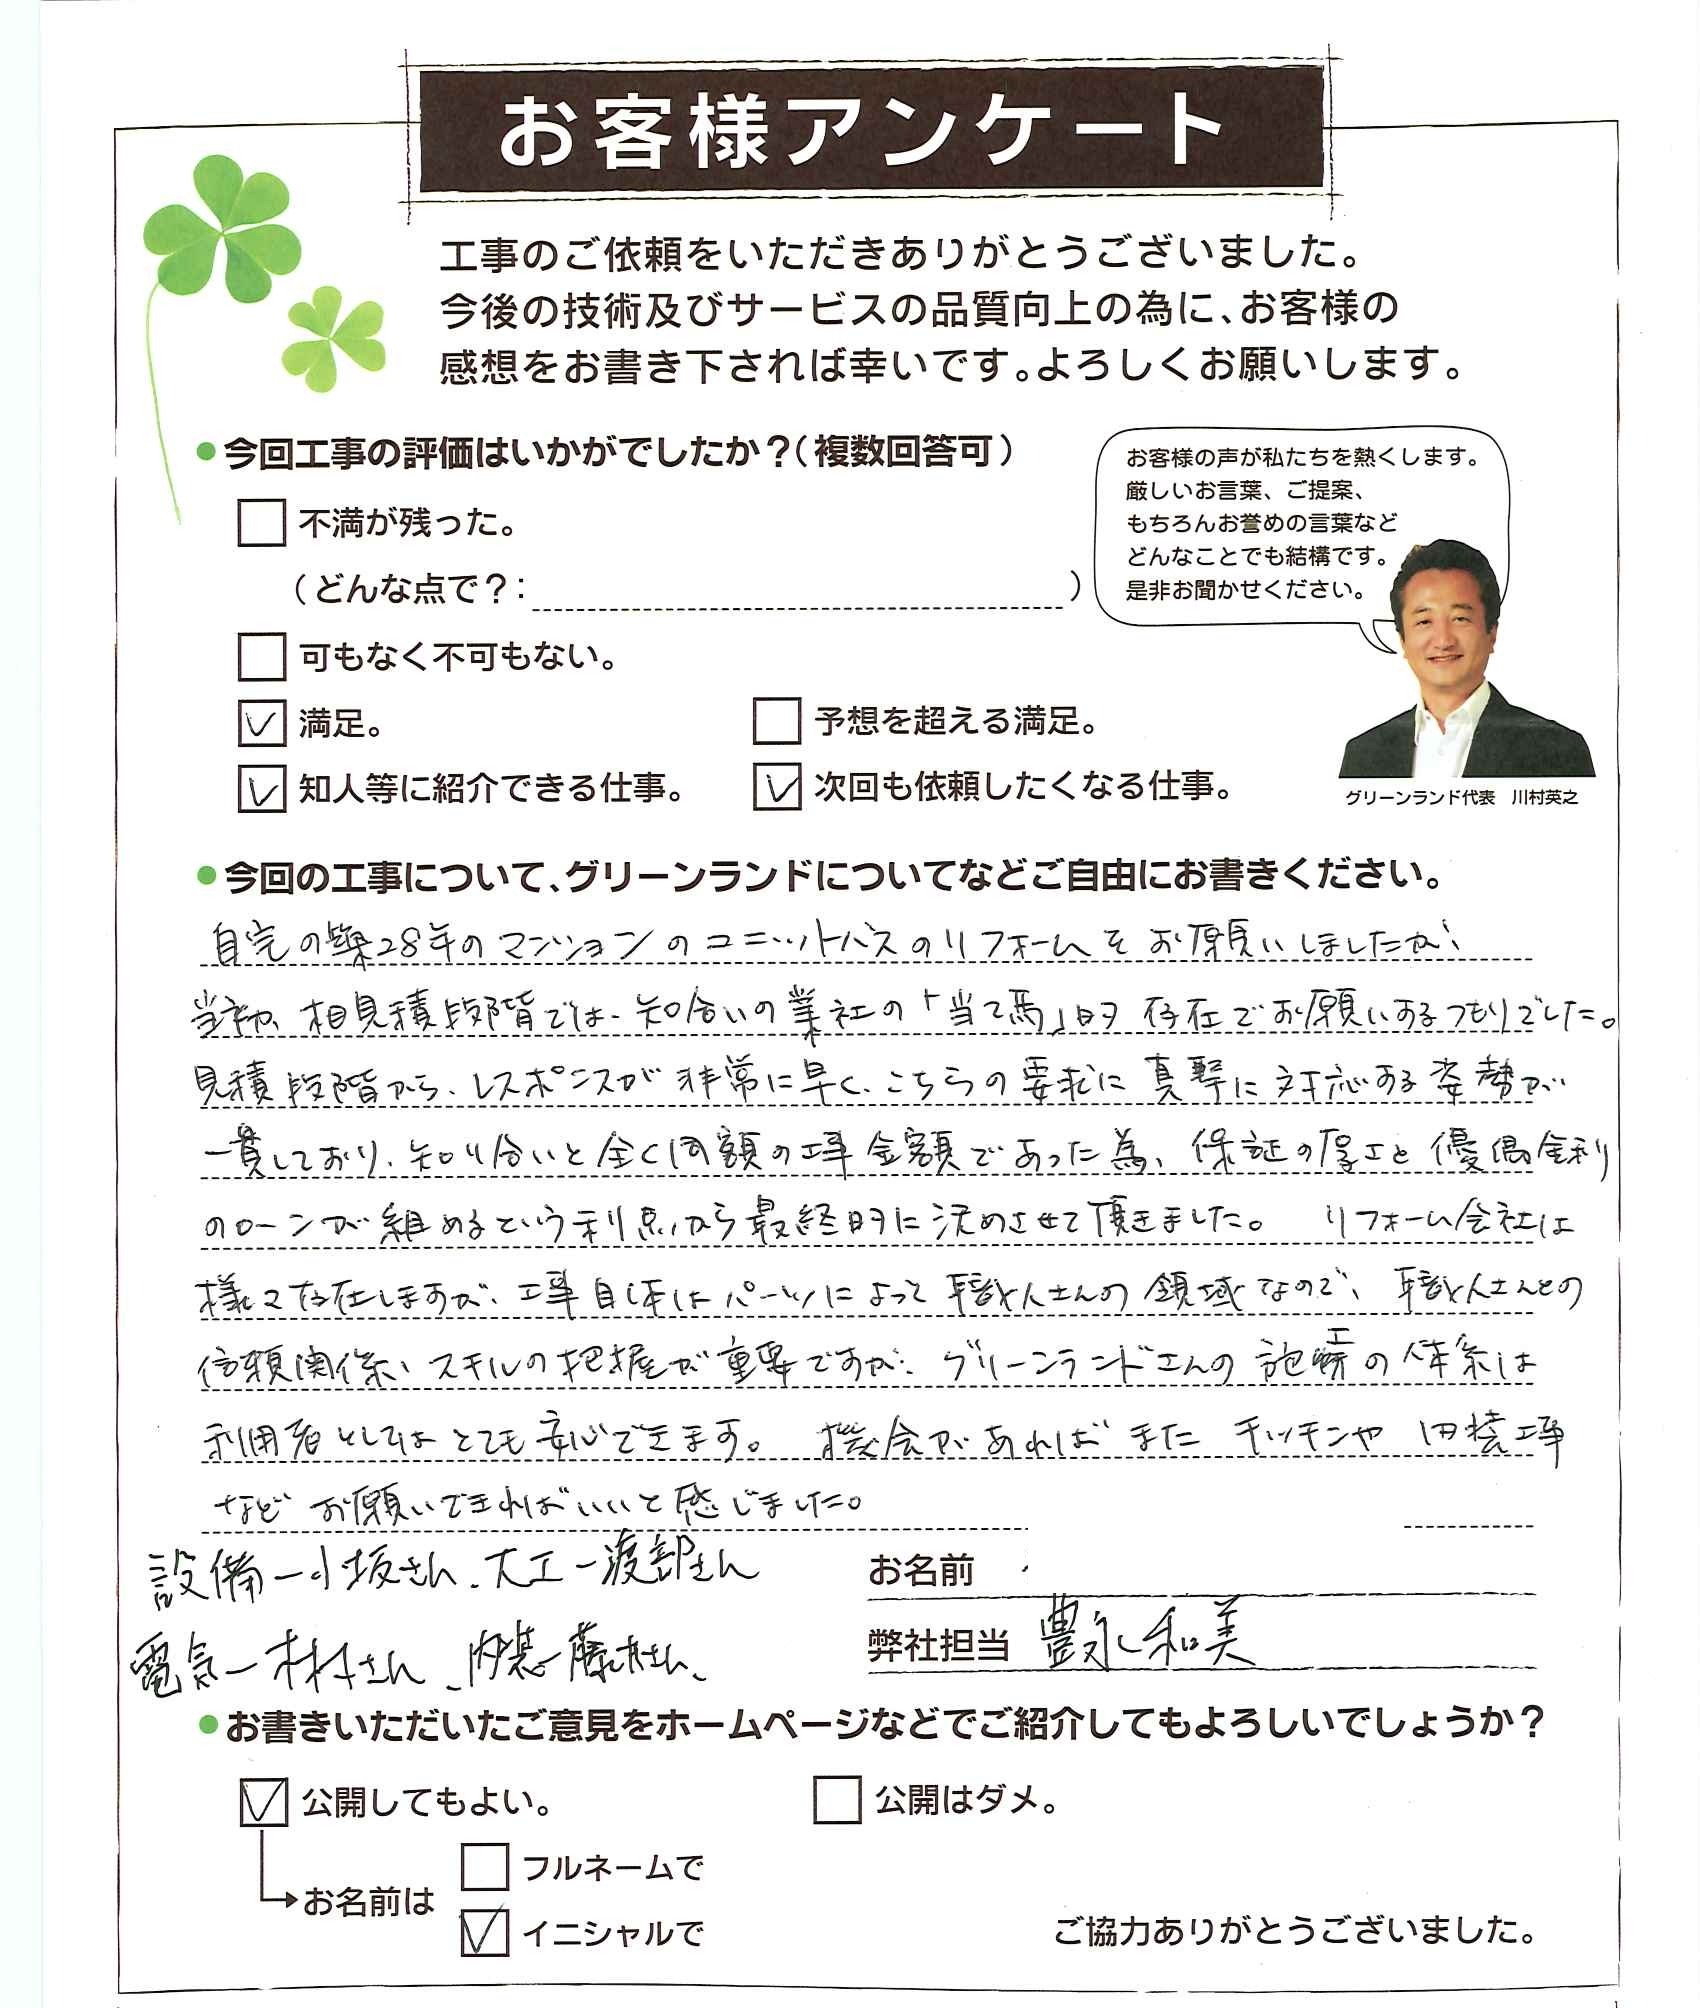 お客様アンケート
工事のご依頼をいただきありがとうございました。
今後の技術及びサービスの品質向上の為に、お客様の
感想をお書き下されば幸いです。よろしくお願いします。
●今回工事の評価はいかがでしたか？（複数回答可）
不満が残った。
（どんな点で？：　）
可もなく不可もない。
満足。
予想を超える満足。
知人等に紹介できる仕事。
次回も依頼したくなる仕事。
お客様の声が私たちを熱くします。
厳しいお言葉、ご提案、
もちろんお誉めの言葉など
どんなことでも結構です。
是非お聞かせください。
グリーンランド代表　川村英之
●今回の工事について、グリーンランドについてなどご自由にお書きください。
自宅の築28年のマンションのユニットバスのリフォームをお願いしましたが、
当初、相見積段階では、知合いの業社の「当て馬」的存在でお願いするつもりでした。
見積段階から、レスポンスが非常に早く、こちらの要求に真摯に対応する姿勢が
一貫しており、知り合いと全く同額の工事金額であった為、保証の厚さと優遇金利
のローンが組めるという利点から最終的に決めさせて頂きました。　リフォーム会社は
様々存在しますが、工事自体はパーツによって職人さんの領域なので、職人さんとの
信頼関係、スキルの把握が重要ですが、グリーンランドさんの施工の体系は
利用者としてはとても安心できます。　機会があればまたキッチンや内装工事
などお願いできればいいと感じました。
設備ー小坂さん、大工ー渡部さん
電気ー木村さん、内装ー藤木さん、
お名前
弊社担当　豊永和美
●お書きいただいたご意見をホームページなどでご紹介してもよろしいでしょうか？
公開してもよい。
公開はダメ。
お名前は
フルネームで
イニシャルで
ご協力ありがとうございました。